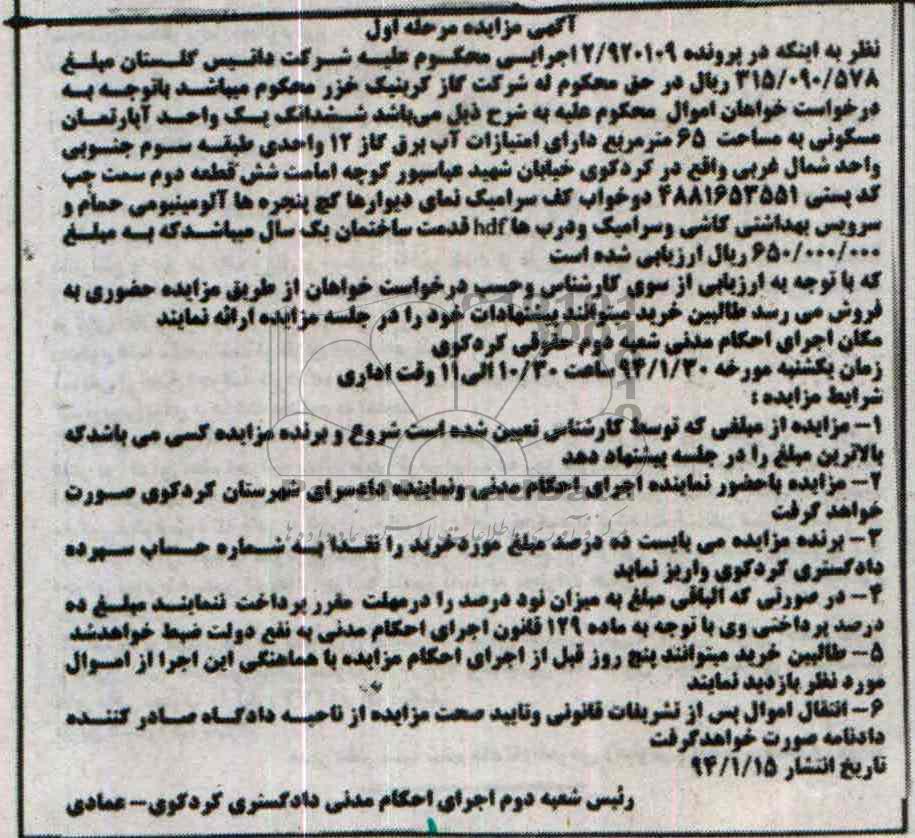 آگهی مزایده مرحله اول
نظر به اینکه در پرونده ۲/۹۲۰۱۰۹ اجرایی محکوم علیه شرکت دانیس گلستان مبلغ
۳۱۵/۰۹۰/۵۷۸ ریال در حق محکوم له شرکت گاز کربنیک خزر محکوم میباشد باتوجه به
درخواست خواهان اموال محکوم علیه به شرح ذیل می‌باشد ششدانگ یک واحد آپارتمان
مسکونی به مساحت ۶۵ مترمربع دارای امتیازات آب برق گاز ۱۲ واحدی طبقه سوم جنوبی
واحد شمال غربی واقع در کردکوی خیابان شهید عباسپور کوچه امامت شش قطعه دوم سمت چپ
کد پستی ۴۸۸۱۶۵۳۵۵۱ دوخواب کف سرامیک نمای دیوارها گچ پنجره ها آلومینیومی حمام و
سرویس بهداشتی کاشی وسرامیک ودرب ها hdf قدمت ساختمان یک سال میباشدکه به مبلغ
۶۵۰/۰۰۰/۰۰۰ ریال ارزیابی شده است
که با توجه به ارزیابی از سوی کارشناس وحسب درخواست خواهان از طریق مزایده حضوری به
فروش می رسد طالبین خرید میتوانند پیشنهادات خود را در جلسه مزایده ارائه نمایند
مکان اجرای احکام مدنی شعبه دوم حقوقی کردکوی
زمان یکشنبه مورخه ۹۴/۱/۳۰ ساعت ۱۰/۳۰ الی ۱۱ وقت اداری
شرایط مزایده :
۱- مزایده از مبلغی که توسط کارشناس تعیین شده است شروع و برنده مزایده کسی می باشدکه
بالاترین مبلغ را در جلسه پیشنهاد دهد
۲- مزایده باحضور نماینده اجرای احکام مدنی ونماینده دادسرای شهرستان کردکوی صورت
خواهد گرفت
۳- برنده مزایده می بایست ده درصد مبلغ موردخرید را نقدا به شماره حساب سپرده
دادگستری کردکوی واریز نماید
۴- در صورتی که الباقی مبلغ به میزان نود درصد را درمهلت مقرر پرداخت ننمایند مبلغ ده
درصد پرداختی وی با توجه به ماده ۱۲۹ قانون اجرای احکام مدنی به نفع دولت ضبط خواهدشد
۵- طالبین خرید میتوانند پنج روز قبل از اجرای احکام مزایده با هماهنگی این اجرا از اموال
مورد نظر بازدید نمایند
۶- انتقال اموال پس از تشریفات قانونی وتایید صحت مزایده از ناحیه دادگاه صادر کننده
دادنامه صورت خواهدگرفت
تاریخ انتشار ۹۴/۱/۱۵
رئیس شعبه دوم اجرای احکام مدنی دادگستری کردکوی- عمادی